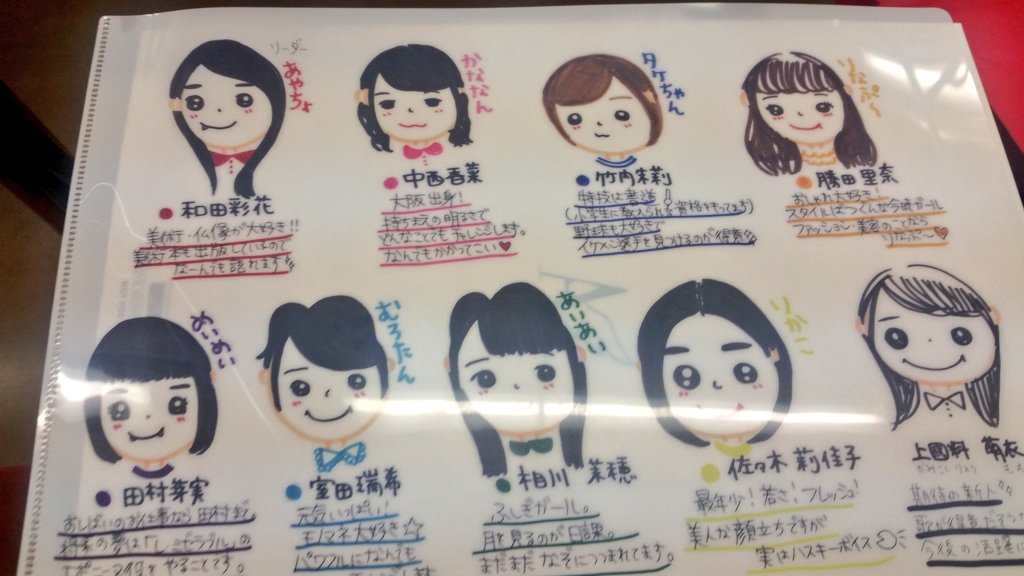 リーダー
あやちょ
和田彩花
美術・仏像が大好き!!
美術本も出版しているので
なーんでも語れます
かななん
中西香菜
大阪出身!
持ち前の明るさで
どんなことでもチャレンジします。
なんでもかかってこい♥
タケちゃん
竹内朱莉
特技は書道!!
(小学生に教えられる資格を持ってます)
野球も大好きで
イケメン選手を見つけるのが得意
りなぷ〜
勝田里奈
おしゃれ大好き!
スタイルばつぐんな今時ガール
ファッション・美容のことなら
りなぷ〜♥
めいめい
田村芽実
おしばいのお仕事なら田村まで。
将来の夢は『レ・ミゼラブル』の
エポニーヌ役をやることです。
むろたん
室田瑞希
元気いっぱい!
モノマネ大好き☆
パワフルになんでも
あいあい
相川茉穂
ふしぎガール。
月を見るのが日課。
まだまだなぞにつつまれてます。
りかこ
佐々木莉佳子
最年少!若さ!フレッシュ!
美人な顔立ちですが
実はハスキーボイス
上國料 萌衣
かみこくりょう もえ
期待の新人
歌が得意
今後の活躍